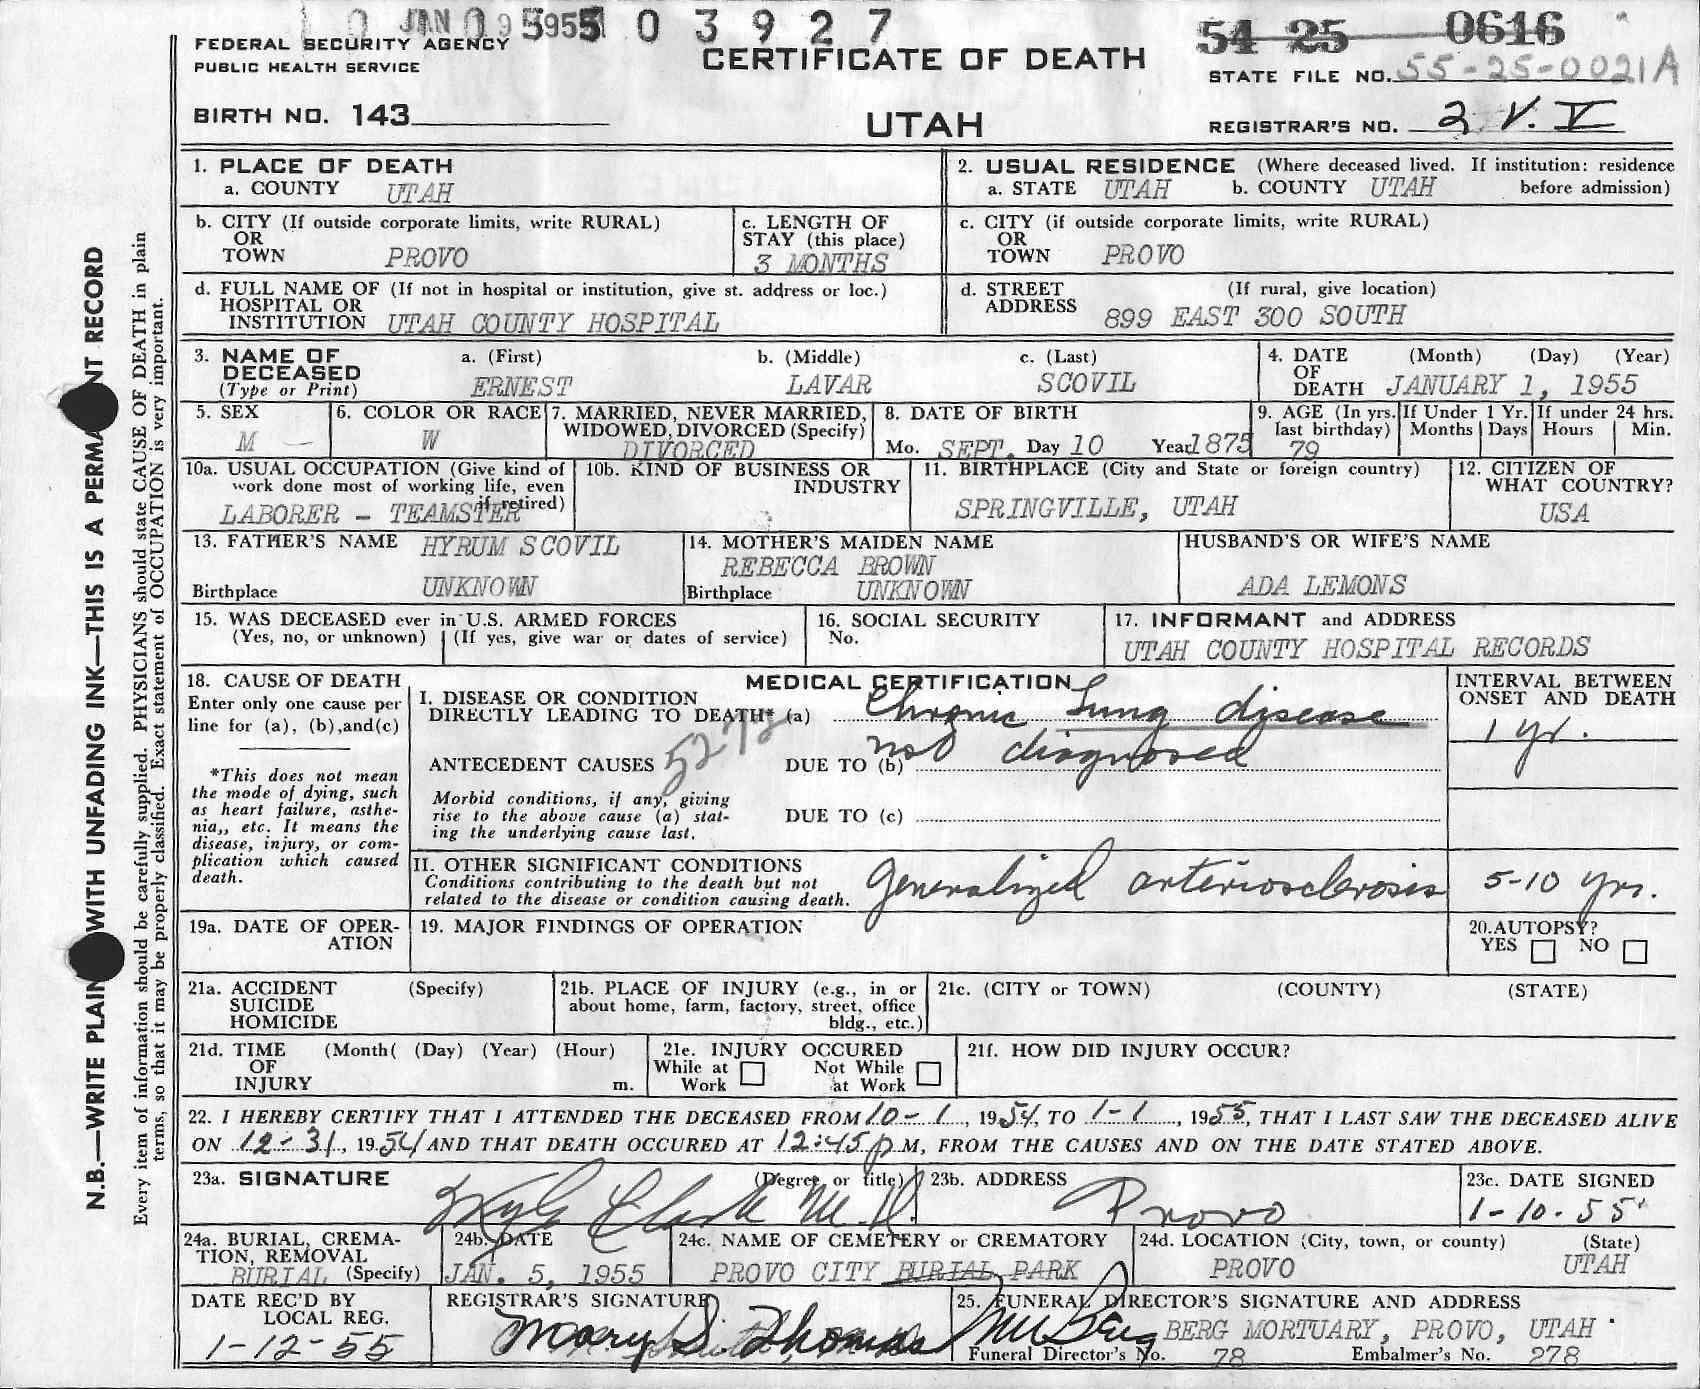 JAN 0 9 5 1955 5 0 3 9 2 7
54 25 0616
FEDERAL SECURITY AGENCY
PUBLIC HEALTH SERVICE
CERTIFICATE OF DEATH
STATE FILE NO. 55-25-0021A
BIRTH NO. 143
UTAH
REGISTRAR'S NO. 2 V. V
1. PLACE OF DEATH
a. COUNTY UTAH
2. USUAL RESIDENCE (Where deceased lived. If institution: residence
a. STATE UTAH b. COUNTY UTAH before admission)
b. CITY (If outside corporate limits, write RURAL)
OR
TOWN PROVO
c. LENGTH OF
STAY (this place)
3 MONTHS
c. CITY (if outside corporate limits, write RURAL)
OR
TOWN PROVO
d. FULL NAME OF (If not in hospital or institution, give st. address or loc.)
HOSPITAL OR
INSTITUTION UTAH COUNTY HOSPITAL
d. STREET (If rural, give location)
ADDRESS
899 EAST 300 SOUTH
3. NAME OF
DECEASED
(Type or Print)
a. (First)
ERNEST
b. (Middle)
LAVAR
c. (Last)
SCOVIL
4. DATE (Month) (Day) (Year)
OF
DEATH JANUARY 1, 1955
5. SEX
M —
6. COLOR OR RACE
W
7. MARRIED, NEVER MARRIED,
WIDOWED, DIVORCED (Specify)
DIVORCED
8. DATE OF BIRTH
Mo. SEPT. Day 10 Year 1875
9. AGE (In yrs.
last birthday)
79
If Under 1 Yr.
Months Days
If under 24 hrs.
Hours Min.
10a. USUAL OCCUPATION (Give kind of
work done most of working life, even
if retired)
LABORER - TEAMSTER
10b. KIND OF BUSINESS OR
INDUSTRY
11. BIRTHPLACE (City and State or foreign country)
SPRINGVILLE, UTAH
12. CITIZEN OF
WHAT COUNTRY?
USA
13. FATHER'S NAME HYRUM SCOVIL
Birthplace UNKNOWN
14. MOTHER'S MAIDEN NAME
REBECCA BROWN
Birthplace UNKNOWN
HUSBAND'S OR WIFE'S NAME
ADA LEMONS
15. WAS DECEASED ever in U.S. ARMED FORCES
(Yes, no, or unknown) (If yes, give war or dates of service)
16. SOCIAL SECURITY
No.
17. INFORMANT and ADDRESS
UTAH COUNTY HOSPITAL RECORDS
18. CAUSE OF DEATH
Enter only one cause per
line for (a), (b),and(c)
*This does not mean
the mode of dying, such
as heart failure, asthe-
nia,, etc. It means the
disease, injury, or com-
plication which caused
death.
MEDICAL CERTIFICATION
I. DISEASE OR CONDITION
DIRECTLY LEADING TO DEATH* (a) Chronic Lung disease
5272
ANTECEDENT CAUSES
DUE TO (b) not diagnosed
Morbid conditions, if any, giving
rise to the above cause (a) stat-
ing the underlying cause last.
DUE TO (c)
INTERVAL BETWEEN
ONSET AND DEATH
1 yr.
II. OTHER SIGNIFICANT CONDITIONS
Conditions contributing to the death but not
related to the disease or condition causing death.
Generalized arteriosclerosis 5-10 yrs.
19a. DATE OF OPER-
ATION
19. MAJOR FINDINGS OF OPERATION
20.AUTOPSY?
YES NO
21a. ACCIDENT (Specify)
SUICIDE
HOMICIDE
21b. PLACE OF INJURY (e.g., in or
about home, farm, factory, street, office
bldg., etc.)
21c. (CITY or TOWN) (COUNTY) (STATE)
21d. TIME (Month( (Day) (Year) (Hour)
OF
INJURY m.
21e. INJURY OCCURED
While at Not While
Work at Work
21f. HOW DID INJURY OCCUR?
22. I HEREBY CERTIFY THAT I ATTENDED THE DECEASED FROM 10-1, 1954, TO 1-1, 1955, THAT I LAST SAW THE DECEASED ALIVE
ON 12-31, 1954 AND THAT DEATH OCCURED AT 12:45 P M, FROM THE CAUSES AND ON THE DATE STATED ABOVE.
23a. SIGNATURE (Degree or title)
Clark M.D.
23b. ADDRESS
Provo
23c. DATE SIGNED
1-10-55
24a. BURIAL, CREMA-
TION, REMOVAL
BURIAL (Specify)
24b. DATE
JAN. 5, 1955
24c. NAME OF CEMETERY or CREMATORY
PROVO CITY BURIAL PARK
24d. LOCATION (City, town, or county) (State)
PROVO UTAH
DATE REC'D BY
LOCAL REG.
1-12-55
REGISTRAR'S SIGNATURE
Mary S. Thomas
25. FUNERAL DIRECTOR'S SIGNATURE AND ADDRESS
Berg BERG MORTUARY, PROVO, UTAH
Funeral Director's No. 78 Embalmer's No. 278
N.B.—WRITE PLAIN WITH UNFADING INK—THIS IS A PERMA NT RECORD
Every item of information should be carefully supplied. PHYSICIANS should state CAUSE OF DEATH in plain
terms, so that it may be properly classified. Exact statement of OCCUPATION is very important.